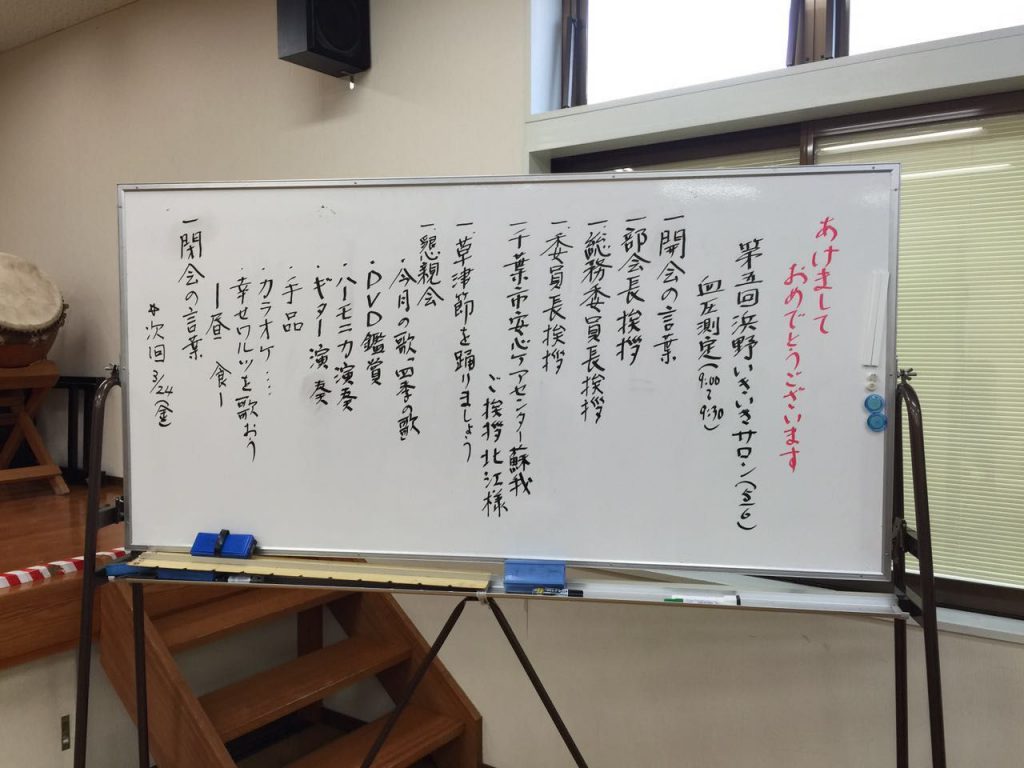 あけまして
おめでとうございます
第五回浜野いきいきサロン(5/6)
血圧測定(9:00〜9:30)
一開会の言葉
一部会長挨拶
一総務委員長挨拶
一委員長挨拶
一千葉市安心ケアセンター蘇我
ご挨拶北江様
一草津節を踊りましょう
一懇親会
・今月の歌「四季の歌」
・DVD鑑賞
・ハーモニカ演奏
・ギター演奏
・手品
・カラオケ....
・幸せワルツを歌おう
ー昼食ー
一閉会の言葉
*次回3/24(金)